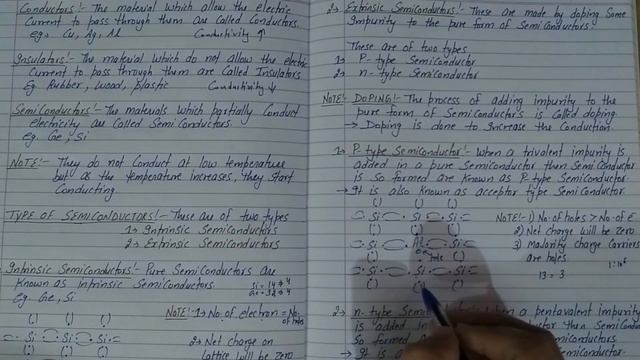 Conductors:- The material which allow the electric
Current to pass through them are Called Conductors.
eg:- Cu, Ag, Al Conductivity ↑
Insulators:- The material which do not allow the electric
Current to pass through them are Called Insulators
Eg Rubber, Wood, plastic Conductivity ↓
Semiconductors:- The materials which partially Conduct
electricity are Called Semiconductors.
eg. Ge, Si
NOTE:- They do not Conduct at low temperature
but as the temperature increases, they start
Conducting.
TYPE OF SEMICONDUCTORS:- These are of two types
1) Intrinsic Semiconductors
2) Extrinsic Semiconductors
Intrinsic Semiconductors:- Pure Semiconductors are
Known as Intrinsic Semiconductors.
Si = 14 → 4
Ge = 32 → 4
Eg:- Ge, Si
NOTE:- 1) No. of electron = No. of holes
Si Si Si
2) Net charge on
lattice will be zero
2) Extrinsic Semiconductors:- These are made by doping Some
Impurity to the pure form of Semiconductors.
These are of two types
1) P-type Semiconductor
2) n-type Semiconductor
NOTE:- DOPING:- The process of adding impurity to the
pure form of Semiconductors is Called doping.
→ Doping is done to Increase the Conduction.
1) P-type Semiconductor:- When a trivalent impurity is
added in a pure Semiconductor then Semiconductor
is so formed are Known as P-type Semiconductor.
→ It is also Known as acceptor type Semiconductor.
Si Si Si
NOTE:- 1) No. of holes > No. of e
2) Net charge will be zero
Si Al Si
hole
3) Majority charge Carriers
are holes
Si Si Si
13 = 3
2) n-type Semi when a pentavalent impurity
is added in Semiconductor then Sem
So formed Semiconductor.
→ It is a Semiconductor